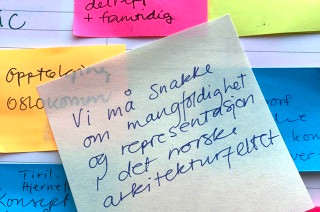 + framtidig
IC
Opptelling
Oslo komm
Vi må snakke
om mangfoldighet
og representasjon
i det norske
arkitekturfeltet
Tiril
Hjerne
Konsept